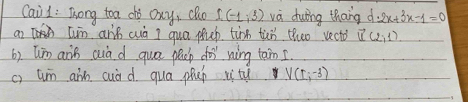 Câu 1: Trong toạ độ Oxy, cho I(-1;3) và đường thẳng d: 2x+3x-1=0
a) Tìm ảnh của I qua phép tịnh tiến theo vectơ u (2;1)
b) Tìm ảnh của d qua phép đối xứng tâm I.
c) Tìm ảnh của d qua phép vị tự V(I;-3)